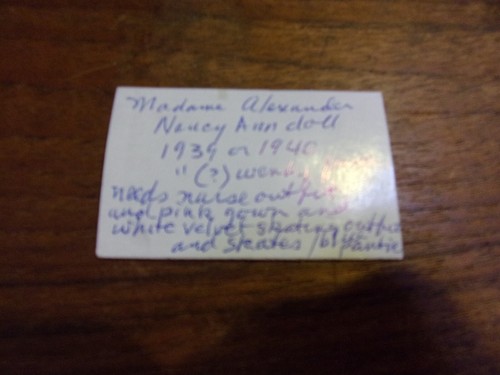 Madame Alexander
Nancy Ann doll
1939 or 1940
" (?)
needs nurse outfit
and pink gown and
white velvet skating outfit
and skates